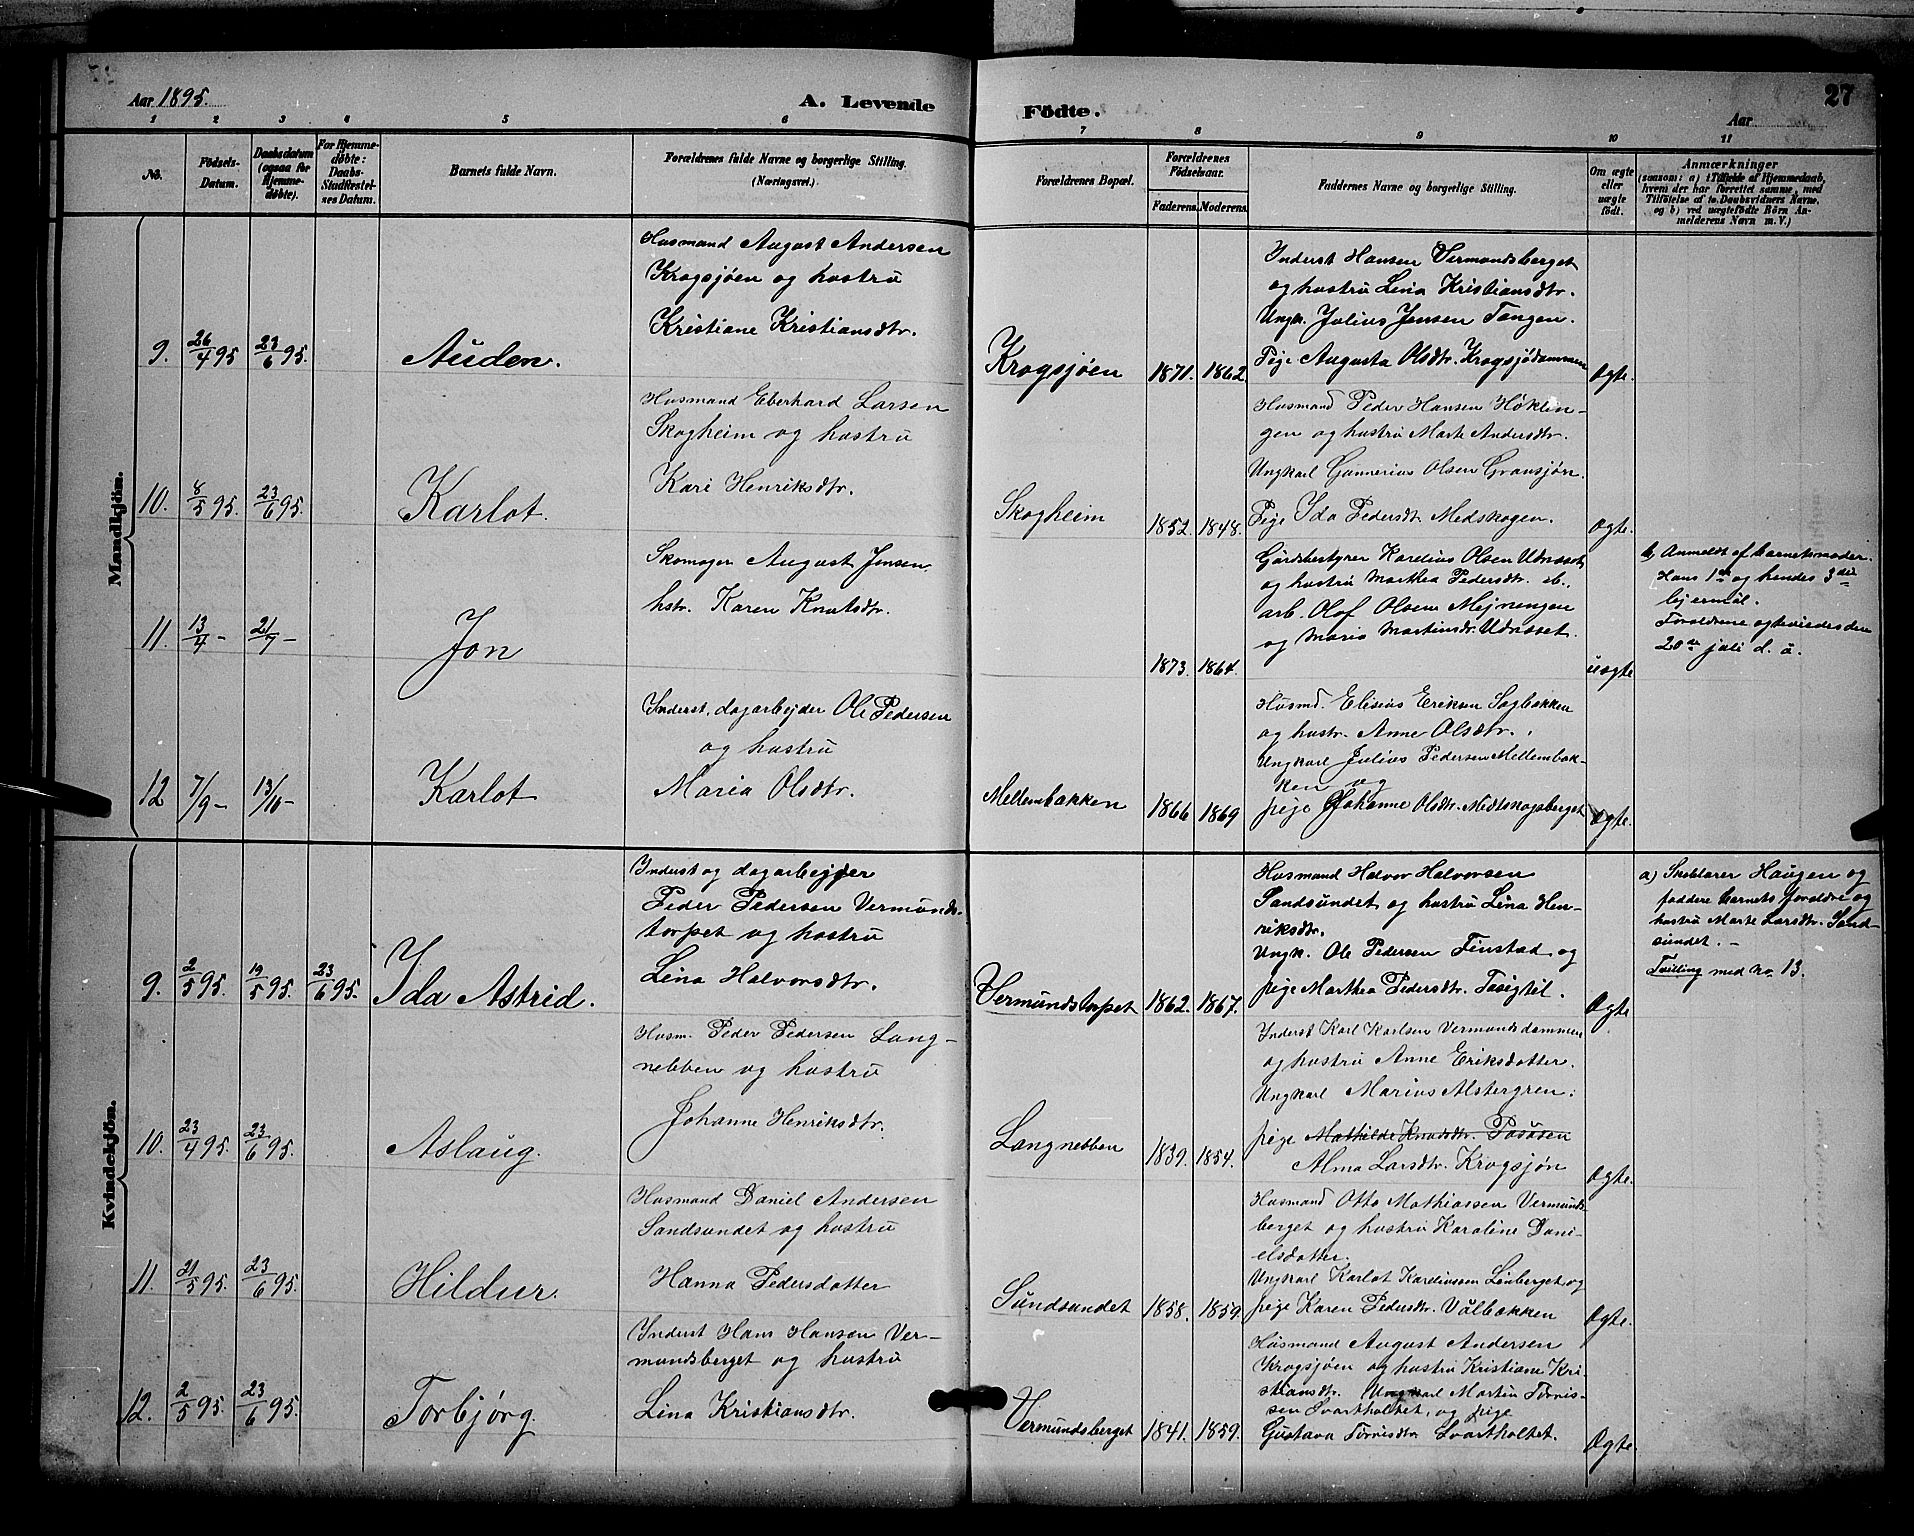 Aar 1895.
A. Levende Födte.
27
Aar
1 2 3 4 5 6 7 8 9 10 11
No.
Födsels-Datum.
Daabsdatum (ogsaa for Hjemmedöbte).
For Hjemmedöbte: Daabs-Stadfæstelses Datum.
Barnets fulde Navn.
Forældrenes fulde Navne og borgerlige Stilling. (Næringsvei.)
Forældrenes Bopæl.
Forældrenes Födselsaar.
Faderens. Moderens.
Faddernes Navne og borgerlige Stilling.
Om ægte eller uægte födt.
Anmærkninger
(saasom: a) i Tilfælde af Hjemmedaab,
hvem der har forrettet samme, med
Tilföielse af to Daabsvidners Navne.
og b) ved uægtefödte Börn An-
melderens Navn m. V.)
Mandkjön.
9. 26/4 95 23/6 95. Auden.
Husmand August Andersen
Krogsjöen og hustrü
Kristiane Kristiansdtr.
Krogsjöen 1871. 1862
Inderst Hansen Vermundsberget
og hustrü Lina Kristiansdtr.
Ungk. Julius Jensen Tangen.
Pige Augusta Olsdtr. Krogsjödammen
Ægte.
10. 8/5 95. 23/6 95. Karlot.
Husmand Eberhard Larsen
Skogheim og hustrü
Kari Henriksdtr.
Skogheim 1852. 1848.
Husmand Peder Hansen Höklin-
gen og hustrü Marte Andersdtr.
Ungkarl Gunnerius Olsen Gransjön.
Pige Ida Pedersdt. Medskogen.
Ægte.
11. 13/4 - 21/7 - Jon
Skomager August Jensen
hstr. Karen Knutsdtr.
1873. 1864.
Gårdsbestyrer Karelius Olsen Udnæset
og hustrü Marthea Pedersdtr. ib.
arb. Olof Olsen Mejnengen
og Maria Martinsdr. Udnæset.
uægte
b) Anmeldt af barnets moder.
Hans 1ste og hendes 3die
lejermål.
Foreldrene ægteviedes den
20de juli d. å.
12 7/9 - 13/10 - Karlot
Inderst, dagarbejder Ole Pedersen
og hustrü
Maria Olsdtr.
Mellembakken 1866 1869
Husmd. Elisius Eriksen Sagbakken
og hustr. Anne Olsdtr.,
Ungkarl Julius Pedersen Mellembak-
ken og
pige Johanne Olsdtr. Medtskogsberget
Ægte.
Kvindekjön.
9. 2/5 95. 19/5 95. 23/6 95. Ida Astrid.
Inderst og dagarbejder
Peder Pedersen Vermünds-
torpet og hustrü
Lina Halvorsdtr.
Vermündstorpet 1862. 1867.
Husmand Halvor Halvorsen
Sandsündet og hustrü Lina Hen-
riksdtr.
Ungk. Ole Pedersen Finstad og
pige Marthea Pedersdtr.
Ægte
a) Skolelærer Haügen og
faddere barnets foreldre og
hustrü Marte Larsdtr. Sand-
sündet. -
Tvilling med no. 13.
10. 23/4 95. 23/6 95. Aslaüg.
Husm. Peder Pedersen Lang-
nebben og hustrü
Johanne Henriksdtr.
Langnebben 1839. 1854.
Inderst Karl Karlsen Vermundsdammen
og hustrü Anne Eriksdatter.
Ungkarl Marius Alstergren.
pige Mathilde Knudsdtr.
Alma Larsdtr. Krogsjön
Ægte.
11. 21/5 95. 23/6 95. Hildur.
Husmand Daniel Andersen
Sandsundet og hustrü
Hanna Pedersdatter
Sündsundet 1858. 1859.
Husmand Otto Mathiassen Vermünds
berget og hustrü Karoline Dani-
elsdatter.
Ungkarl Karlot Kareliussen Linberget og
pige Karen Pedersdtr. Vålbakken
Ægte.
12. 2/5 95. 23/6 95. Torbjörg.
Inderst Hans Hansen Ver-
mundsberget og hustrü
Lina Kristiansdtr.
Vermündsberget 1841. 1859.
Husmand August Andersen
Krogsjöen og hustrü Kristiane Kri-
stiansdtr. Ungkarl Martin Törris-
sen Svartholtet, og pige
Gustava Törrisdtr Svartholtet.
Ægte.